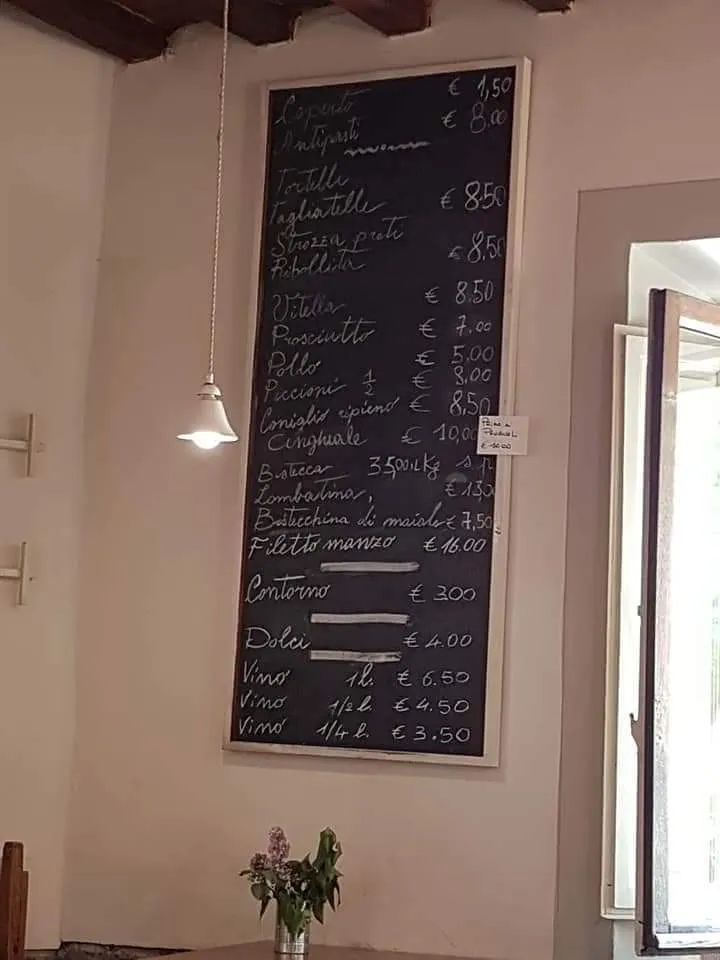 Coperto € 1,50
Antipasti € 8.00
Tortelli
Tagliatelle € 8.50
Strozza preti
Ribollita € 8,50
Vitella € 8.50
Prosciutto € 7.00
Pollo € 5,00
Piccioni 1/2 € 8,00
Coniglio ripieno € 8,50
Cinghiale € 10,00
Bistecca 35,00 il Kg s.p
Lombatina, € 130
Bistecchina di maiale € 7,50
Filetto manzo € 16.00
Contorno € 300
Dolci € 4.00
Vino 1 l. € 6.50
Vino 1/2 l. € 4.50
Vino 1/4 l. € 3.50